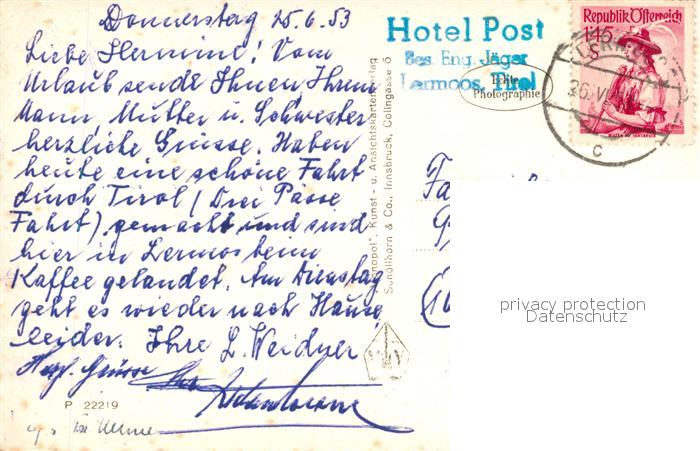 Donnerstag 25.6.53
Liebe Hermine! Vom
Urlaub sende Ihnen, Ihrem
Mann, Mutter u. Schwester
herzliche Grüsse. Haben
heute eine schöne Fahrt
durch Tirol (Drei Pässe
Fahrt) gemacht und sind
hier in Lermos beim
Kaffee gelandet. Am Dienstag
geht es wieder nach Hause
leider. Ihre L. Weidner
Herzl. Grüsse
P 22219
Kunst - u. Ansichtskartenverlag
Schöllhorn & Co., Innsbruck, Collingasse 6
Hotel Post
Bes. Eng. Jäger
Lermoos, Tirol
Echte
Photographie
Republik Österreich
1.45 S
26. VI
C
privacy protection
Datenschutz